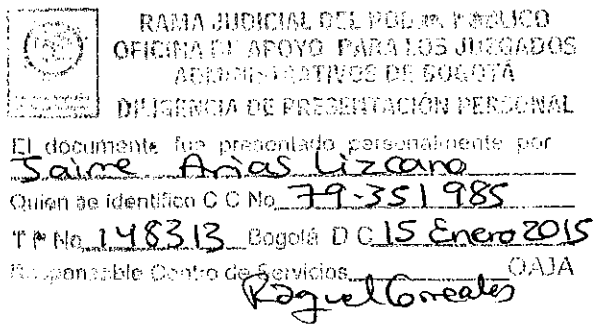 RAMA JUDICIAL DEL PODER PÚBLICO
OFICINA DE APOYO PARA LOS JUZGADOS
ADMINISTRATIVOS DE BOGOTÁ
DILIGENCIA DE PRESENTACIÓN PERSONAL
El documento fue presentado personalmente por
Jaime Arias Lizcano
Quien se identifico C C No 79-351985
T P No 148313 Bogotá D C 15 Enero 2015
Responsable Centro de Servicios OAJA